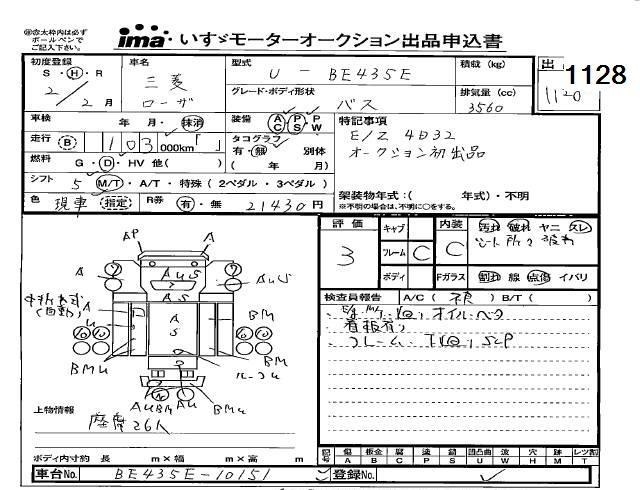 ※赤太枠内は必ず
ボールペンで
ご記入下さい。
ima いすゞモーターオークション出品申込書
初度登録
S・H・R
2/2月
車名
三菱
ローザ
型式
U-BE435E
グレード・ボディ形状
バス
積載(kg)
排気量(cc)
3560
出
1120
1128
車検 年 月・抹消
装備 AC PS PW
特記事項
E/Z 4D32
オークション初出品
走行 B 103000km「 」
タコグラフ
有・無 別体
( 年 月)
燃料 G・D・HV 他( )
シフト 5 M/T・A/T・特殊(2ペダル・3ペダル)
架装物年式:( 年式)・不明
※不明の場合は、不明に○をする。
色 現車(指定)
R券 有・無 21430円
評価
3
キャブ
フレーム C
ボディ
内装
C
Fガラス
汚れ 破れ ヤニ スレ
割れ 線 点傷 イバリ
検査員報告 A/C( ) B/T( )
看板有
フレーム
AP
A
AUS
AS
A
(自動)
U
BM
BMU
AUBM
AU
上物情報
座席26人
ボディ内寸約 長 m×幅 m×高 m
記号 傷A 板金B 腐C 塗P 錆S 凹凸曲U 波W 穴H 跡M レツ割T
車台No. BE435E-10151
登録No.